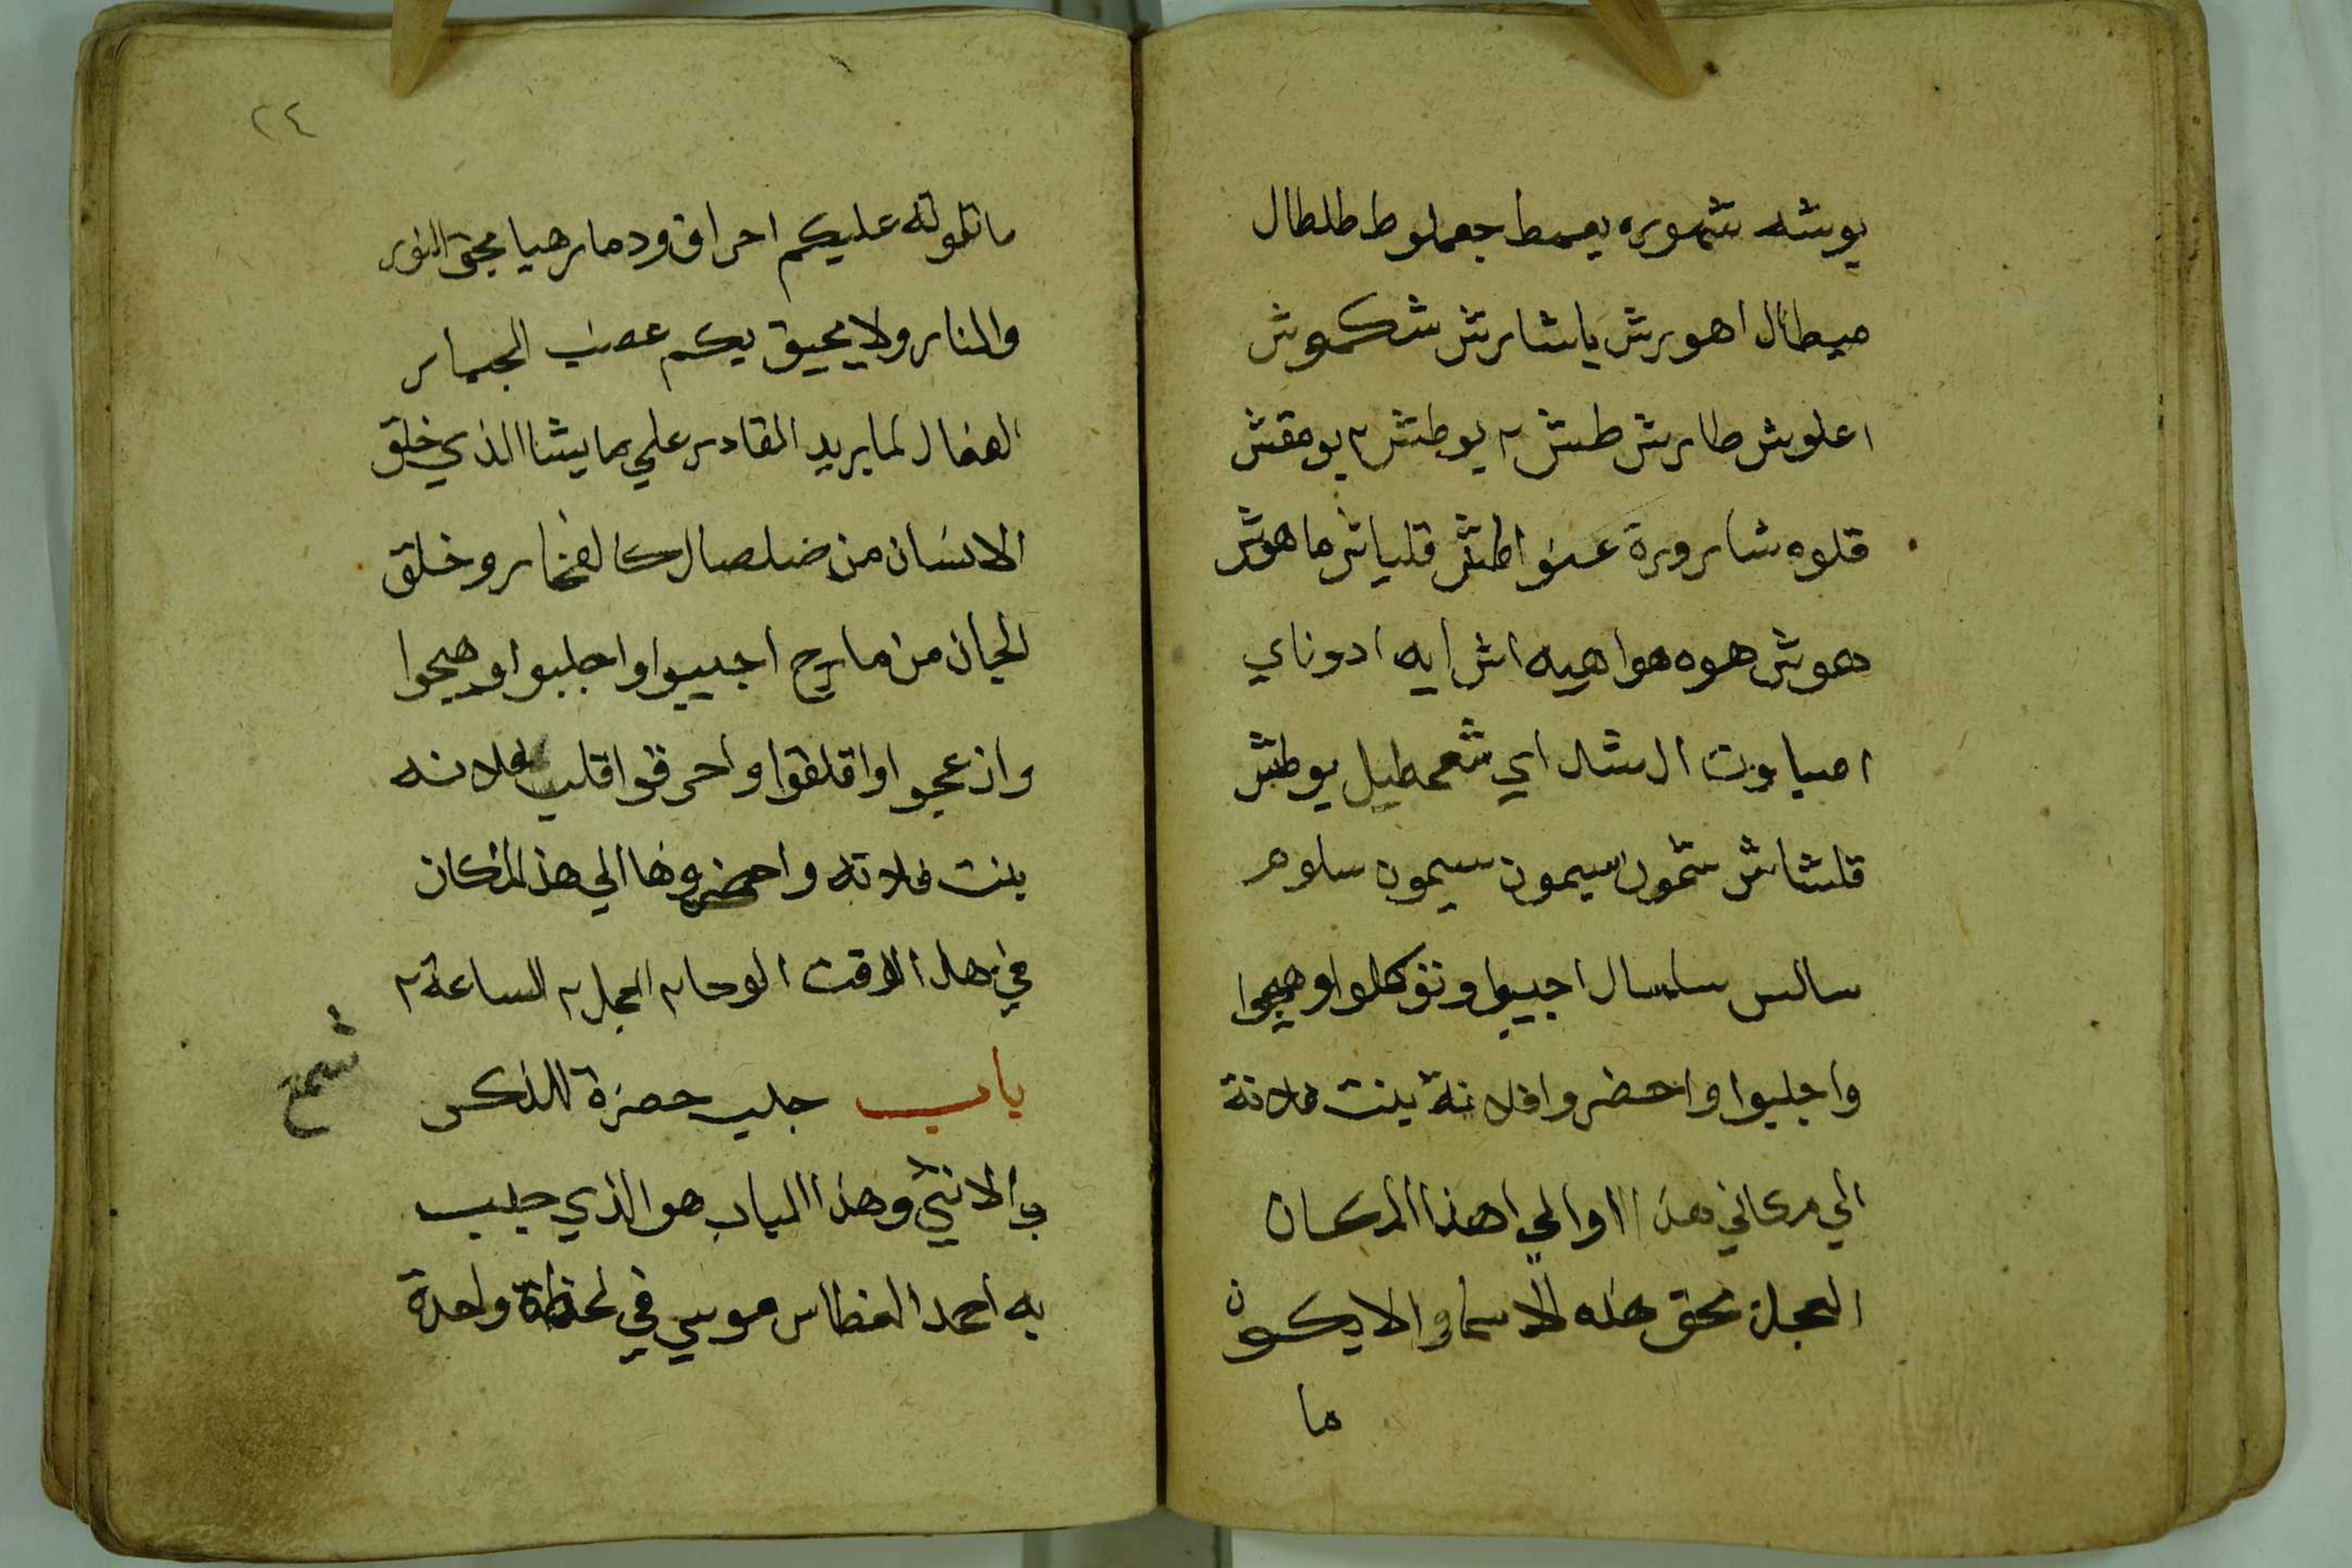 يوشه شموره يعمط جعملوط طلطال
ميطال اهورش ياشارش شكموش
اعلوش طارش طش ٢ يوطش ٢ يومقش
قلوه شاروره اطش قلياش ماهوش
هموش هوه هواهيه اش ايه ادوناي
اصباوت ال شال اي شعمطيل يوطش
قلشاش شمون سيمون سيمون سلوم
سالس سلسال اجيبوا وتوكلوا وهيجوا
واجلبوا واحضروا فلانة بنت فلانة
الي مكاني هذا او الي هذا المكان
العجل ٢ بحق هذه الاسما والا يكون
ما
٢٤
ما تلوته عليكم احراق ودمار هيا بحق النور
والنار ولا يحيق بكم غضب الجبار
الفعال لما يريد القادر علي ما يشا الذي خلق
الانسان من صلصال كالفخار وخلق
الجان من مارج اجيبوا واجلبوا وهيجوا
وازعجوا واقلقوا واحرقوا قلب فلانه
بنت فلانه واحضروها الي هذا المكان
في هذا الوقت الوحا ٢ العجل ٢ الساعة ٢
باب جلب حضرة للذكر
والانثي وهذا الباب هو الذي جلب
به احمد الغطاس موسي في لحظة واحدة